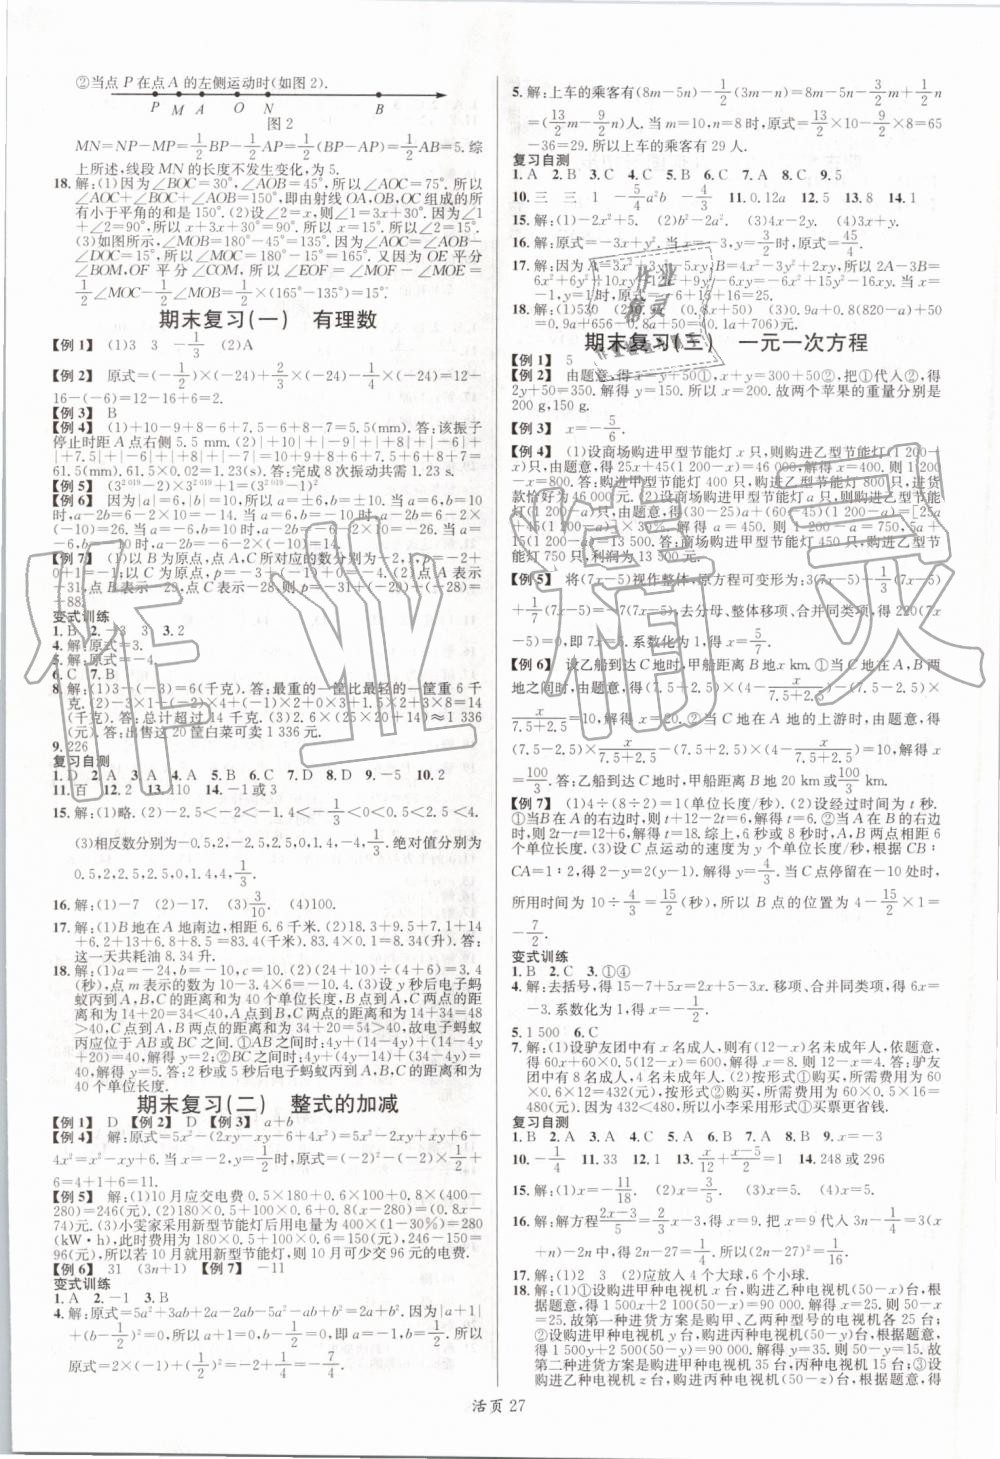 ②当点 P 在点 A 的左侧运动时(如图 2).
P M A O N B
图 2
MN=NP-MP=1/2BP-1/2AP=1/2(BP-AP)=1/2AB=5. 综
上所述,线段 MN 的长度不发生变化,为 5.
18. 解:(1)因为∠BOC=30°,∠AOB=45°,所以∠AOC=75°. 所以
∠AOC+∠BOC+∠AOB=150°,即由射线 OA,OB,OC 组成的所
有小于平角的和是 150°. (2)设∠2=x,则∠1=3x+30°. 因为∠1
+∠2=90°,所以 x+3x+30°=90°. 所以 x=15°. 所以∠2=15°.
(3)如图所示,∠MOB=180°-45°=135°,
∠DOC=180°-15°=165°. 又因为 OE 平分
∠BOM,OF 平分∠COM,所以∠EOF=∠MOF-∠MOE=
1/2∠MOC-1/2∠MOB=1/2×(165°-135°)=15°.
期末复习(一) 有理数
【例 1】 (1)3 3 -1/3 (2)A
【例 2】 原式=(-1/2)×(-24)+2/3×(-24)-1/4×(-24)=12-
16-(-6)=12-16+6=2.
【例 3】 B
【例 4】 (1)+10-9+8-6+7.5-6+8-7=5.5(mm). 答:该振子
停止时距 A 点右侧 5.5 mm. (2)|+10|+|-9|+|+8|+|-6|
+|+7.5|+|-6|+|+8|+|-7|=10+9+8+6+7.5+6+8+7=
61.5(mm). 61.5×0.02=1.23(s). 答:完成 8 次振动共需 1.23 s.
【例 5】 (3²⁰¹⁹-2)×(3²⁰¹⁹-1)²
【例 6】 因为|a|=6,|b|=10,所以 a=±6,b=±10. 当 a=6,b=10
时,a-2b=6-2×10=-14. 当 a=6,b=-10 时,a-2b=6-2×
(-10)=26. 当 a=-6,b=10 时,a-2b=-6-2×10=-26. 当 a=
-6,b=-10 时,a-2b=-6-2×(-10)=14.
【例 7】 (1)以 B 为原点,点 A,C 所对应的数分别为-2,1,p=-2+
0+1=-1;以 C 为原点,p=-3-1+0=-4. (2)点 A 表示
-31,点 B 表示-29,点 C 表示-28. 则 p=-31+(-29)+(-28)=
-88.
变式训练
1. B 2. -3 3 3. 2
4. 解:原式=3.
5. 解:原式=-4.
6. C 7. B
8. 解:(1)3-(-3)=6(千克). 答:最重的一筐比最轻的一筐重 6 千
克. (2)-3×1+(-2)×4+(-1.5)×2+0×3+1.5×2+3×8=14
(千克). 答:总计超过 14 千克. (3)2.6×(25×20+14)≈1 336
(元). 答:出售这 20 筐白菜可卖 1 336 元.
9. 226
复习自测
1. D 2. A 3. A 4. A 5. B 6. C 7. D 8. D 9. -5 10. 2
11. 百 12. 2 13. 110 14. -1 或 3
15. 解:(1)略. (2)-2.5<-2<-1/4<-1/3<0<0.5<2.5<4.
(3)相反数分别为-0.5,2,-2.5,2.5,0,-4,1/4,1/3. 绝对值分别为
0.5,2,2.5,2.5,0,4,1/4,1/3.
16. 解:(1)-7 (2)-17. (3)3/10. (4)100.
17. 解:(1)B 地在 A 地南边,相距 6.6 千米. (2)18.3+9.5+7.1+14
+6.2+13+6.8+8.5=83.4(千米). 83.4×0.1=8.34(升). 答:
这一天共耗油 8.34 升.
18. 解:(1)a=-24,b=-10,c=10. (2)(24+10)÷(4+6)=3.4
(秒),点 m 表示的数为 10-3.4×6=-10.4. (3)设 y 秒后电子蚂
蚁丙到 A,B,C 的距离和为 40 个单位长度,B 点到 A,C 两点的距
离和为 14+20=34<40,A 点到 B,C 两点的距离和为 14+34=48
>40,C 点到 A,B 两点的距离和为 34+20=54>40,故电子蚂蚁
丙应位于 AB 或 BC 之间. ①AB 之间时:4y+(14-4y)+(14-4y
+20)=40,解得 y=2;②BC 之间时:4y+(4y-14)+(34-4y)=
40,解得 y=5. 答:2 秒或 5 秒后电子蚂蚁丙到 A,B,C 的距离和为 40
个单位长度.
期末复习(二) 整式的加减
【例 1】 D 【例 2】 D 【例 3】 a+b
【例 4】 解:原式=5x²-(2xy-xy-6+4x²)=5x²-2xy+xy+6-
4x²=x²-xy+6. 当 x=-2,y=1/2时,原式=(-2)²-(-2)×1/2+6
=4+1+6=11.
【例 5】 解:(1)10 月应交电费 0.5×180+0.6×100+0.8×(400-
280)=246(元). (2)0.5×180+0.6×100+0.8(x-280)=(0.8x-
74)元. (3)小雯家采用新型节能灯后用电量为 400×(1-30%)=280
(kW·h),此时费用为 180×0.5+100×0.6=150(元),246-150=
96(元),所以若 10 月就使用新型节能灯,则 10 月可节约 96 元的电费.
【例 6】 31 (3n+1) 【例 7】 -11
变式训练
1. A 2. -1 3. B
4. 解:原式=5a²+3ab+2a-2ab-5a²+4ab-2a=5ab. 因为|a+1|
+(b-1/2)²=0,所以 a+1=0,b-1/2=0,即 a=-1,b=1/2. 所以
原式=2×(-1)×(1/2)²+4×(-1)×1/2=-5/2.
5. 解:上车的乘客有(8m-5n)-1/2(3m-n)=8m-5n-3/2m+1/2n
=(13/2m-9/2n)人. 当 m=10,n=8 时,原式=13/2×10-9/2×8=65
-36=29. 所以上车的乘客有 29 人.
复习自测
1. A 2. B 3. B 4. D 5. D 6. A 7. B 8. C 9. 5
10. 三 三 1 -5/4a²b -4/3 11. 0.12a 12. 5 13. 8 14. 1
15. 解:(1)-2x²+5. (2)b²-2a². (3)4x-2y. (4)3x+y.
16. 解:原式=-3x+y². 当 x=-3,y=-3/2时,原式=45/4.
17. 解:因为 A=3x²+3y²-5xy,B=4xy-3y²+2x²,所以 2A-3B=
6x²+6y²+10xy-12xy+9y²-6x²=15y²-2xy. 当
1/4时,原式=-6+16+16=25.
18. 解:(1)530 (2)0.9x (3)0.9a+0.8(820-a)+50)
=0.9a+656-0.8a+50=(0.1a+706)元.
期末复习(三) 一元一次方程
【例 1】 5
【例 2】 由题意,得 x=y+50①,x+y=300+50②,把①代入②,得
2y+50=350. 解得 y=150. 所以 x=200. 故两个苹果的重量分别是
200 g,150 g.
【例 3】 x=-5/6.
【例 4】 (1)设商场购进甲型节能灯 x 只,则购进乙型节能灯(1 200-x)
只,由题意,得 25x+45(1 200-x)=46 000,解得 x=400. 则 1 200
-x=800. 答:购进甲型节能灯 400 只,购进乙型节能灯 800 只,进货
款恰好为 46 000 元. (2)设商场购进甲型节能灯 a 只,则购进乙型节能
灯(1 200-a)只,由题意得(30-25)a+(60-45)(1 200-a)=[25a
+45(1 200-a)]×30%. 解得 a=450. 则 1 200-a=750,5a+
15(1 200-a)=13 500. 答:商场购进甲型节能灯 450 只,购进乙型节
能灯 750 只,利润为 13 500 元.
【例 5】 将(7x-5)视作整体,原方程可变形为:3(7x-5)+1/3(7x-5)
+1/7(7x-5)=-1/2(7x-5). 去分母、整体移项、合并同类项,得 220(7x
-5)=0,即 7x=5. 系数化为 1,得 x=5/7.
【例 6】 设乙船到达 C 地时,甲船距离 B 地 x km. ①当 C 在 A、B 两
地之间时,由题意,得(7.5+2.5)×x/(7.5+2.5)+(7.5-2.5)×
x/(7.5+2.5)=10,解得 x=20. ②当 C 地在 A 地的上游时,由题意,得
(7.5-2.5)×x/(7.5+2.5)-(7.5+2.5)×x/(7.5+2.5)=10,解得 x=
100/3. 答:乙船到达 C 地时,甲船距离 B 地 20 km或100/3 km.
【例 7】 (1)4÷(8÷2)=1(单位长度/秒). (2)设经过时间为 t 秒.
①当 B 在 A 的右边时,则 t+12-2t=6. 解得 t=6. ②当 A 在 B 的右边
时,则 2t-t=12+6,解得 t=18. 综上,6 秒或 8 秒时,A、B 两点相距 6
个单位长度. (3)设 C 点运动的速度为 y 单位长度/秒,根据 CB∶
CA=1∶2,得 2-y=2(y-1). 解得 y=4/3. 当 C 停留在-10 处时,
所用时间为 10÷4/3=15/2(秒),所以 B 点的位置为 4-15/2×1=
-7/2.
变式训练
1. B 2. C 3. ①④
4. 解:去括号,得 15-7+5x=2x+5-3x. 移项、合并同类项,得 6x=
-3. 系数化为 1,得 x=-1/2.
5. 1 500 6. C
7. 解:(1)设驴友团中有 x 名成人,则有(12-x)名未成年人,依题意,
得 60x+60×0.5(12-x)=600,解得 x=8. 则 12-x=4. 答:驴友
团中有 8 名成人,4 名未成年人. (2)按形式①购买,所需费用为 60
×0.6×12=432(元);按形式②购买,所需费用为 60×0.5×16=
480(元). 因为 432<480,所以小李采用形式①买票更省钱.
复习自测
1. B 2. A 3. A 4. C 5. A 6. C 7. B 8. B 9. x=-3
10. -1/4 11. 33 12. 1 13. x/12+(x-5)/2=1 14. 248 或 296
15. 解:(1)x=-11/18. (2)x=3/5. (3)x=5. (4)x=5.
16. 解:解方程(2x-3)/5=2/3x-3,得 x=9. 把 x=9 代入 3n-1/4=3(x
+n)-2n 中,得 2n=27 1/4
17. 解:(1)2 3 (2)应放入 4 个大球,6 个小球.
18. 解:(1)①设购进甲种电视机 x 台,购进乙种电视机(50-x)台,根
据题意,得 1 500x+2 100(50-x)=90 000. 解得 x=25. 则 50-x=
25. 故第一种进货方案是购甲、乙两种型号的电视机各 25 台;
②设购进甲种电视机 y 台,购进丙种电视机(50-y)台,根据题意,
得 1 500y+2 500(50-y)=90 000. 解得 y=35. 则 50-y=15. 故
第二种进货方案是购进甲种电视机 35 台,丙种电视机 15 台;③设
购进乙种电视机 z 台,购进丙种电视机(50-z)台,根据题意,得
活页 27